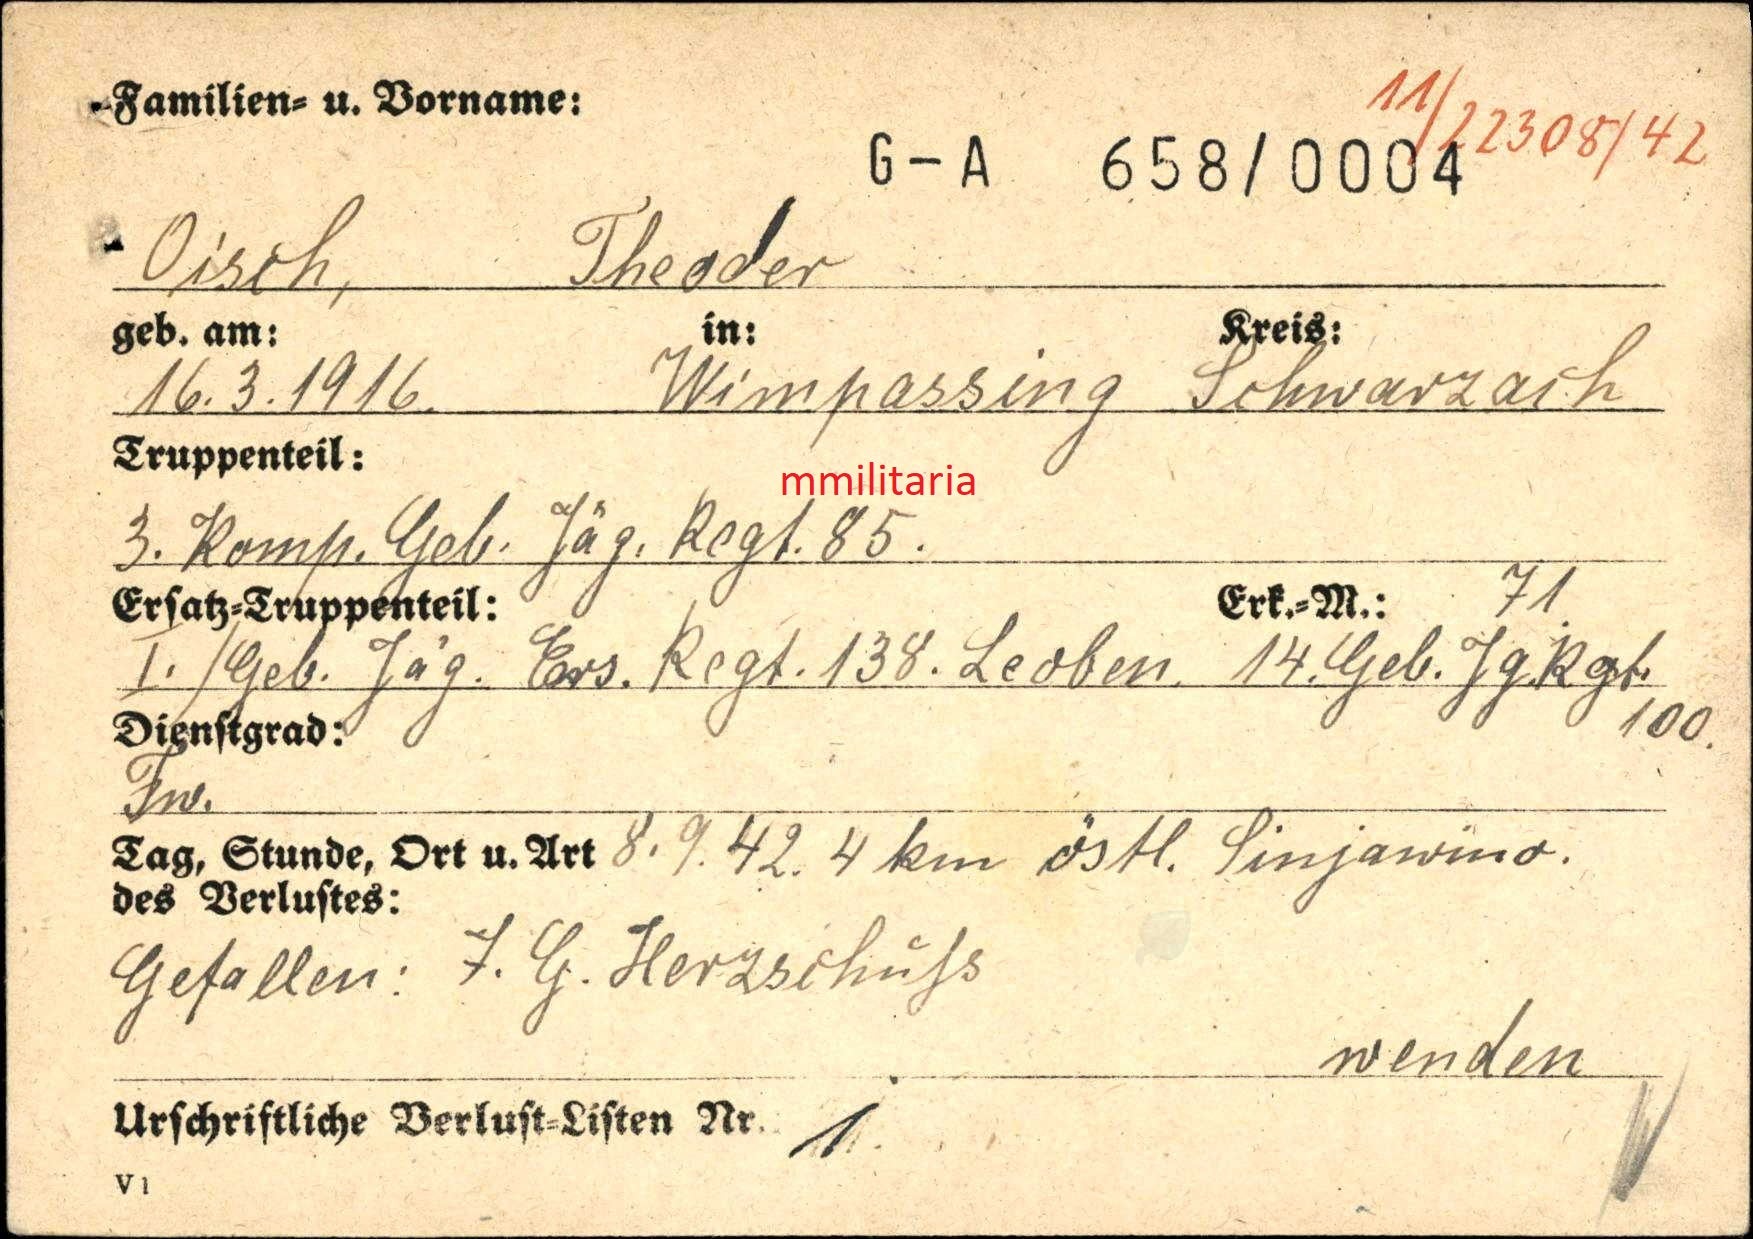 Familien- u. Vorname:
11/22308/42
G-A 658/0004
Oisch, Theoder
geb. am: in: Kreis:
16.3.1916. Wimpassing Schwarzach
Truppenteil:
mmilitaria
3. Komp. Geb. Jäg. Regt. 85.
Ersatz-Truppenteil: Erk.-M.: 71.
I./Geb. Jäg. Ers. Regt. 138. Leoben. 14. Geb. Jg. Rgt.
100.
Dienstgrad:
Fw.
Tag, Stunde, Ort u. Art 8. 9. 42. 4 km östl. Sinjawino.
des Verlustes:
Gefallen: J. G. Herzschuss
wenden
Urschriftliche Verlust-Listen Nr. 1.
V 1